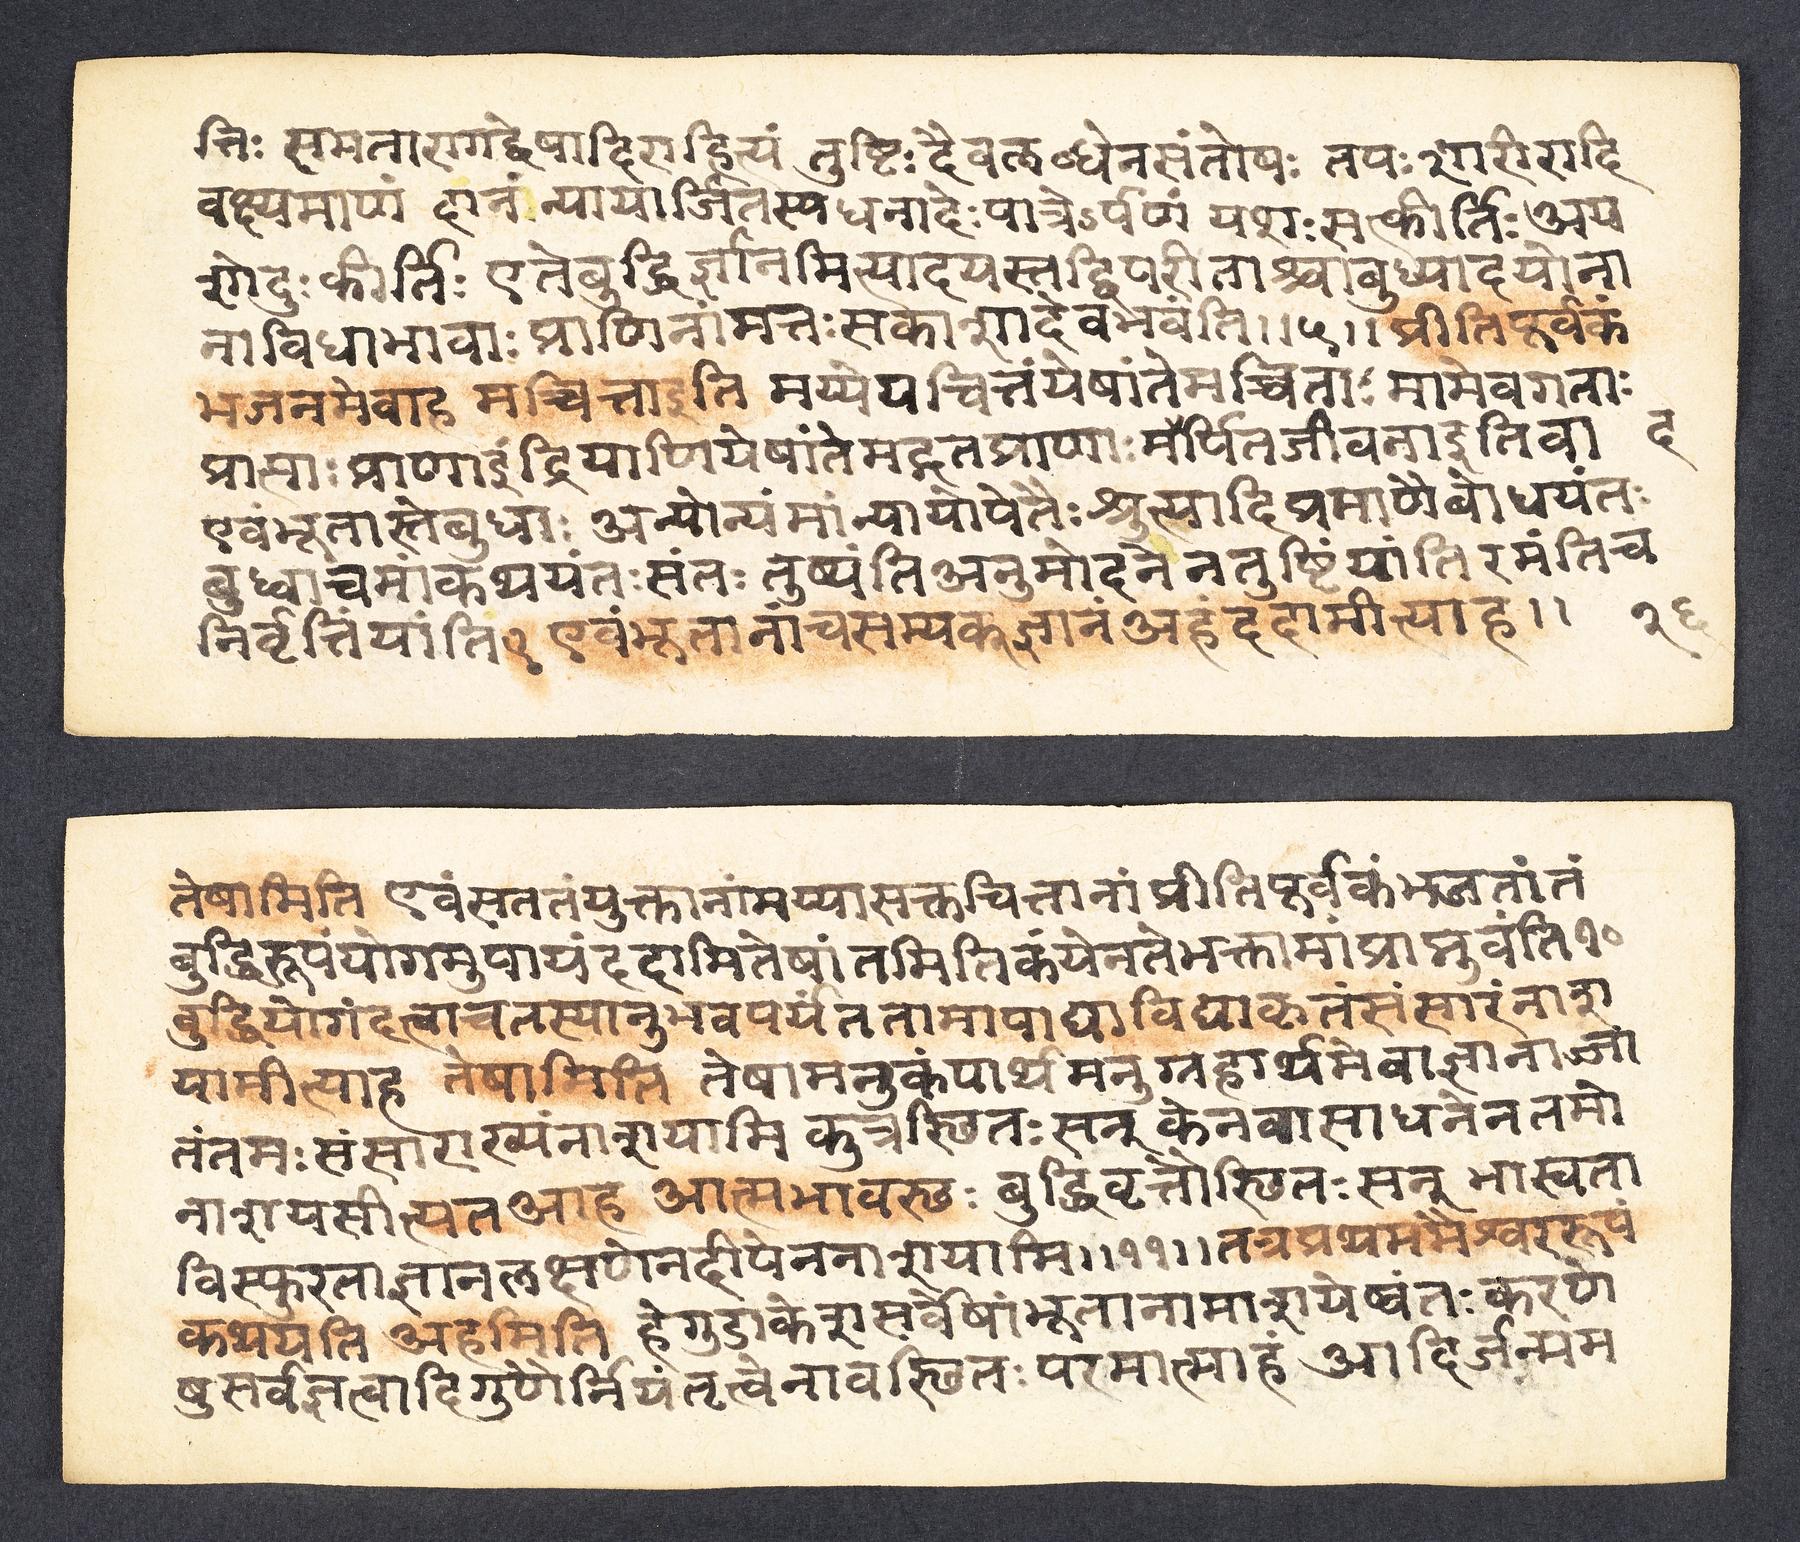 त्तिः समतारागद्वेषादिराहित्यं तुष्टिः दैवलब्धेनसंतोषः तपः शारीरादि
वक्ष्यमाणं दानं न्यायार्जितस्यधनादेः पात्रेऽर्पणं यशः सत्कीर्तिः अय
शोदुः कीर्तिः एतेबुद्धिर्ज्ञानमित्यादयस्तद्विपरीताश्चाबुध्यादयोना
नाविधाभावाः प्राणिनांमत्तः सकाशादेवभवंति ।।५।। प्रीतिपूर्वकं
भजनमेवाह मच्चित्ताइति मय्येवचित्तंयेषांतेमच्चित्ताः मामेवगताः
प्राप्ताः प्राणाइंद्रियाणियेषांतेमद्गतप्राणाः मर्पितजीवनाइतिवा
द
एवंभूतास्तेबुधाः अन्योन्यंमांन्यायोपेतैः श्रुत्यादिप्रमाणैर्बोधयंतः
बुध्वाचमांकथयंतः संतः तुष्यंतिअनुमोदनेनतुष्टिंयांतिरमंतिच
निर्वृत्तिंयांति ९ एवंभूतानांचसम्यक्ज्ञानंअहंददामीत्याह ।।
२६
तेषामिति एवंसततंयुक्तानांमय्यासक्तचित्तानांप्रीतिपूर्वकंभजतांतं
बुद्धिरूपंयोगमुपायंददामितेषांतमितिकंयेनतेभक्तामांप्राप्नुवंति १०
बुद्धियोगंदत्वाचतस्यानुभवपर्यंततामापाद्याविद्याकृतंसंसारंनाश
यामीत्याह तेषामिति तेषामनुकंपार्थमनुग्रहार्थमेवाज्ञानाज्जा
तंतमः संसाराख्यंनाशयामि कुत्रस्छितः सन् केनवासाधनेनतमो
नाशयसीत्यतआह आत्मभावस्छः बुद्धिवृत्तौस्छितः सन् भास्वता
विस्फुरताज्ञानलक्षणेनदीपेननाशयामि ।।११।। तत्रप्रथममैश्वररूपं
कथयति अहमिति हेगुडाकेशसर्वेषांभूतानामाशयेष्वंतः करणे
षुसर्वज्ञत्वादिगुणैर्नियंतृत्वेनावस्छितः परमात्माहं आदिर्जन्मम